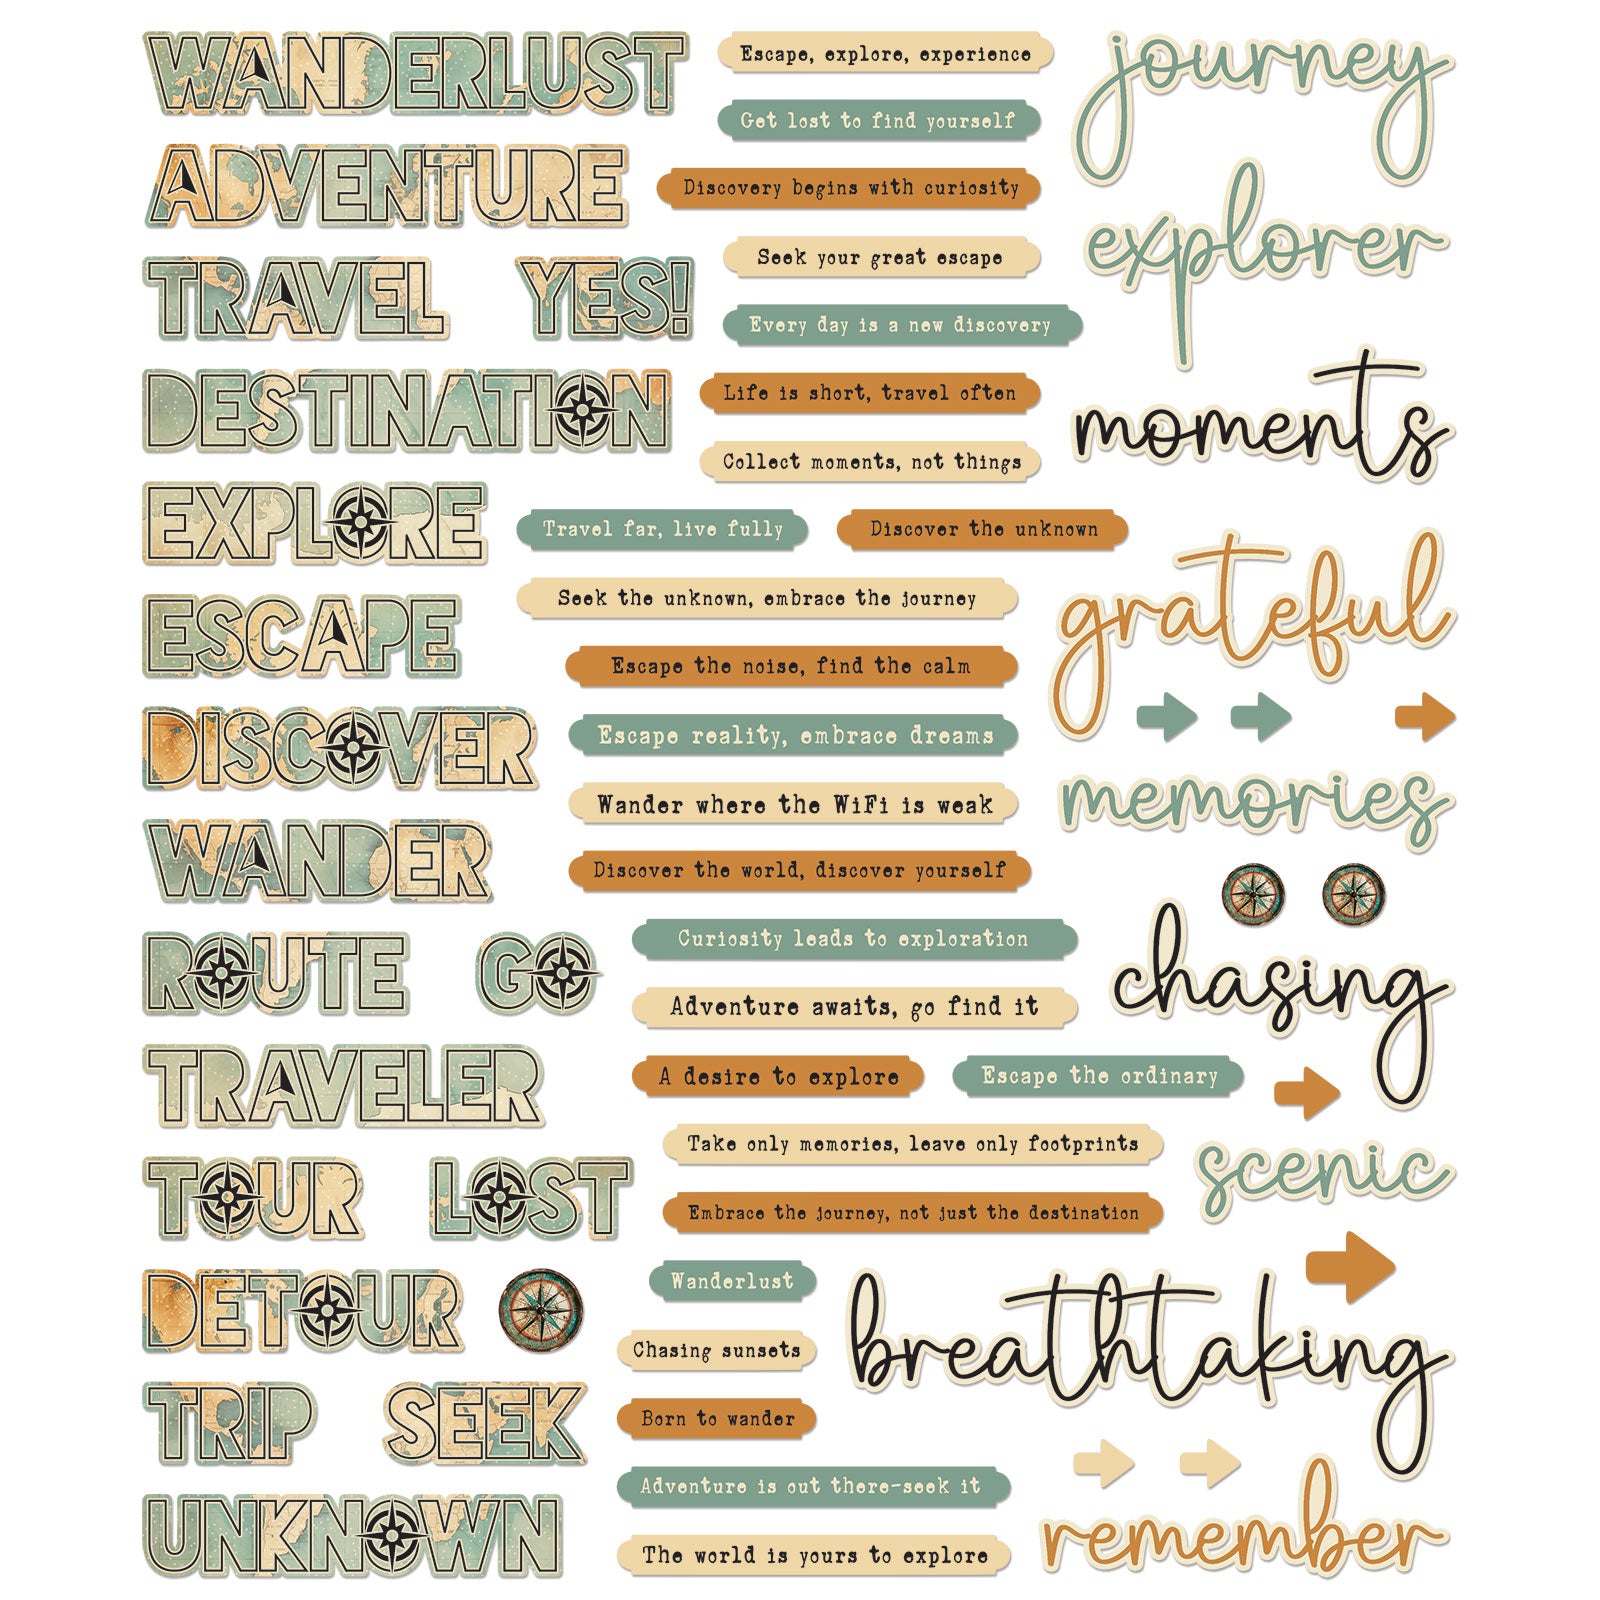 WANDERLUST
ADVENTURE
TRAVEL YES!
DESTINATION
EXPLORE
ESCAPE
DISCOVER
WANDER
ROUTE GO
TRAVELER
TOUR LOST
DETOUR
TRIP SEEK
UNKNOWN
Escape, explore, experience
Get lost to find yourself
Discovery begins with curiosity
Seek your great escape
Every day is a new discovery
Life is short, travel often
Collect moments, not things
Travel far, live fully
Discover the unknown
Seek the unknown, embrace the journey
Escape the noise, find the calm
Escape reality, embrace dreams
Wander where the WiFi is weak
Discover the world, discover yourself
Curiosity leads to exploration
Adventure awaits, go find it
A desire to explore
Escape the ordinary
Take only memories, leave only footprints
Embrace the journey, not just the destination
Wanderlust
Chasing sunsets
Born to wander
Adventure is out there-seek it
The world is yours to explore
journey
explorer
moments
grateful
memories
chasing
scenic
breathtaking
remember